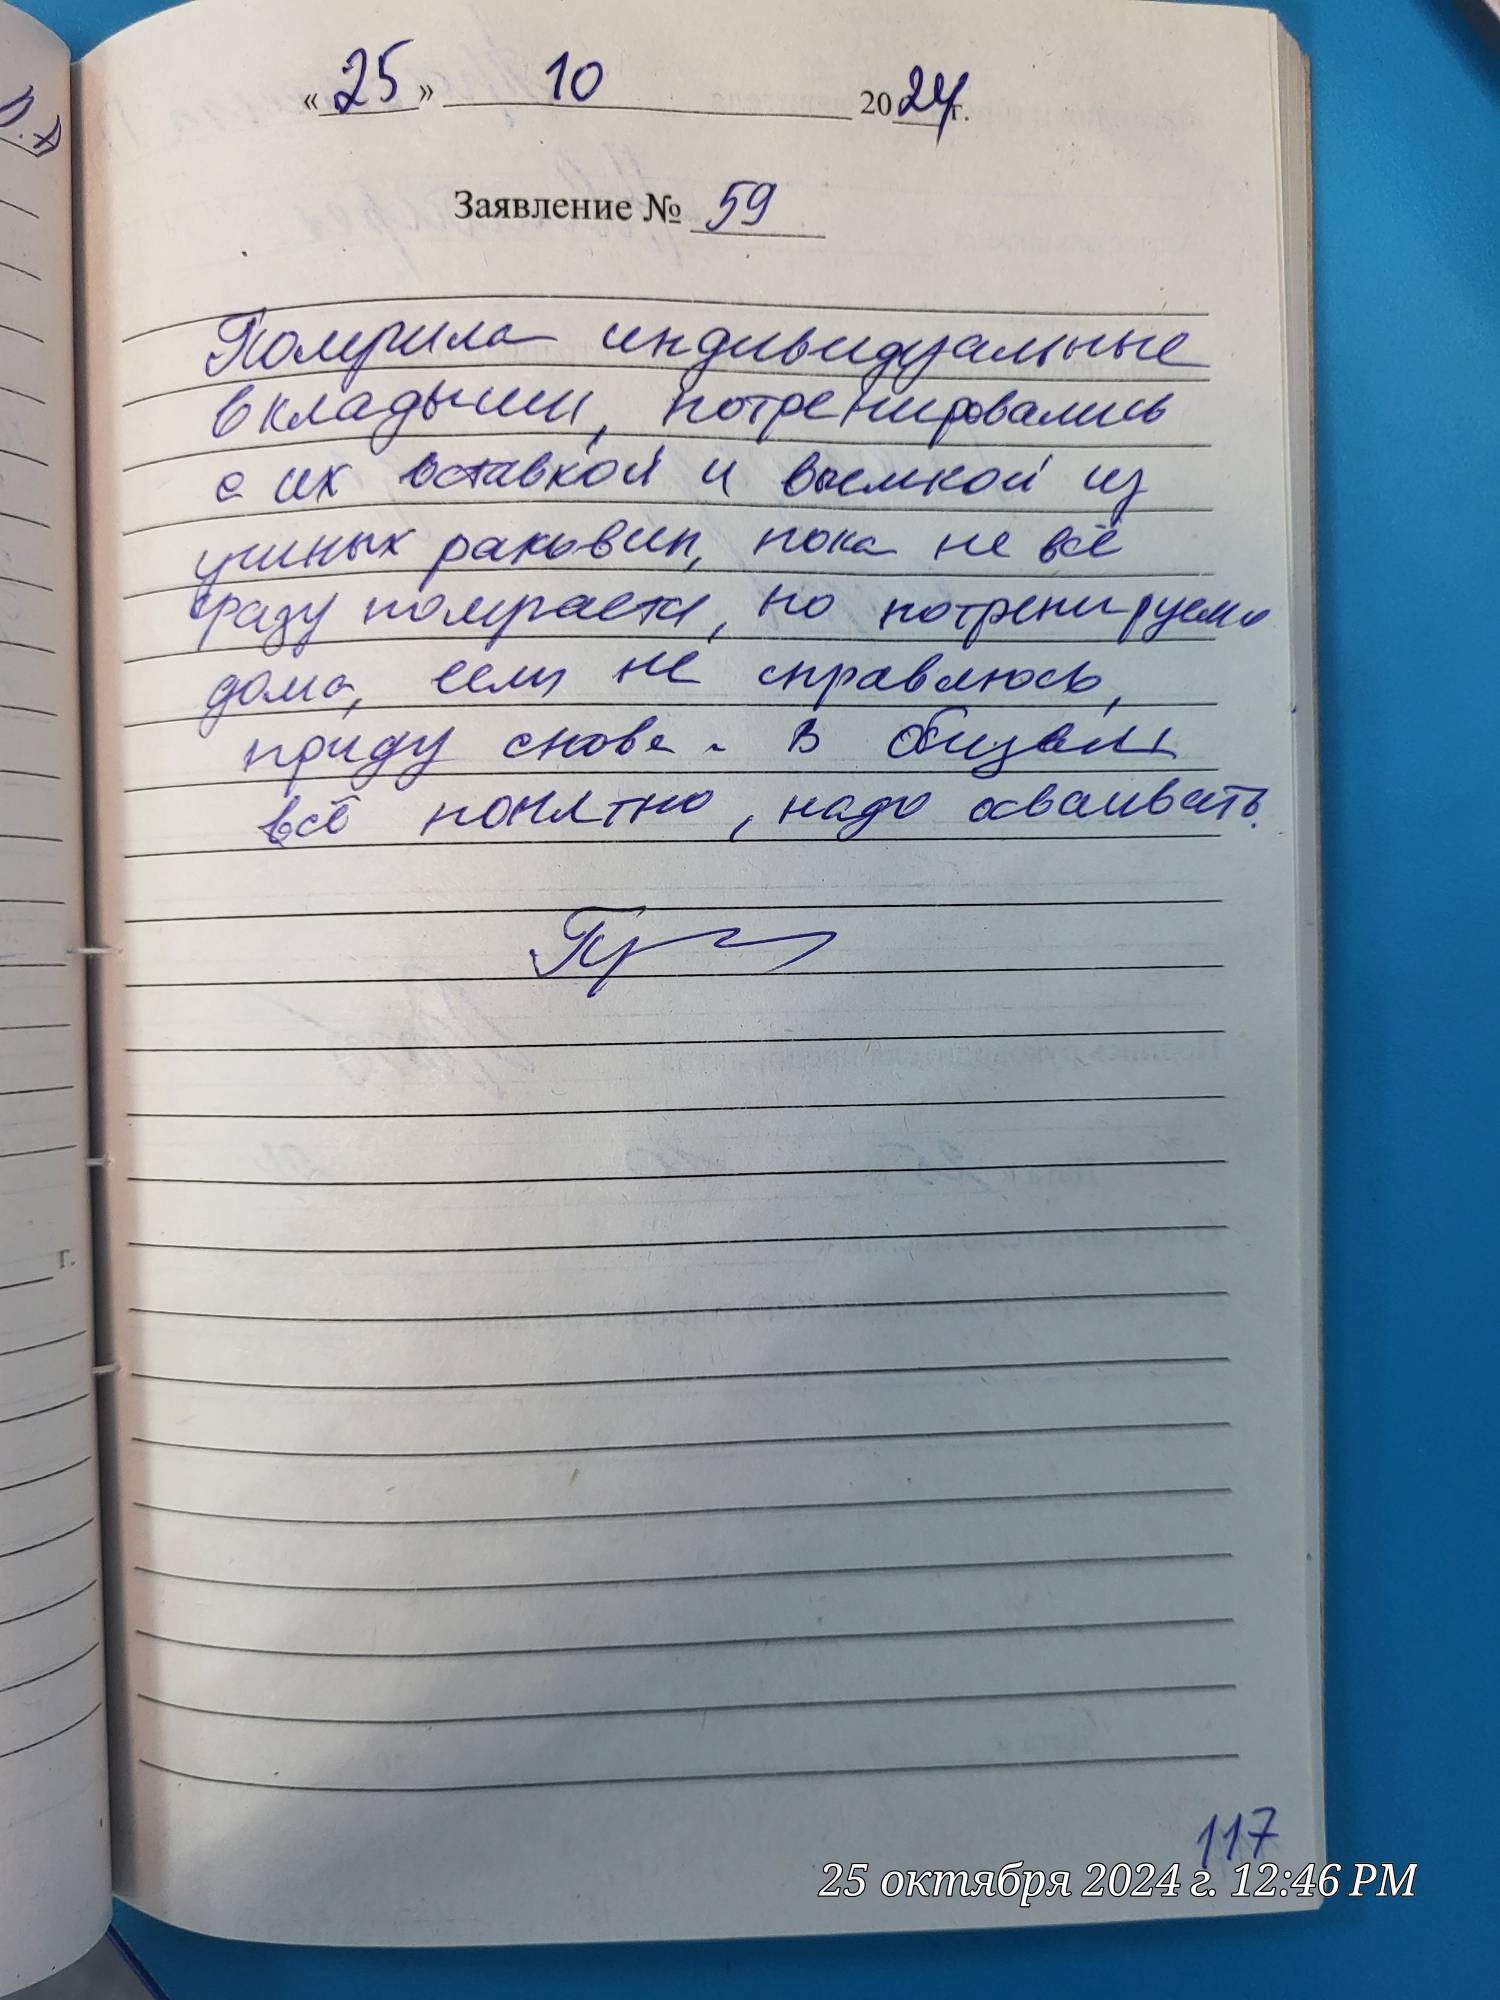 « 25 » 10 2024 г.
Заявление № 59
Померила индивидуальные
вкладыши, потренировались
с их вставкой и выемкой из
ушных раковин, пока не всё
сразу получается, но потренируемся
дома, если не справлюсь,
приду снова. В общем
всё понятно, надо осваивать.
г.
117
25 октября 2024 г. 12:46 PM